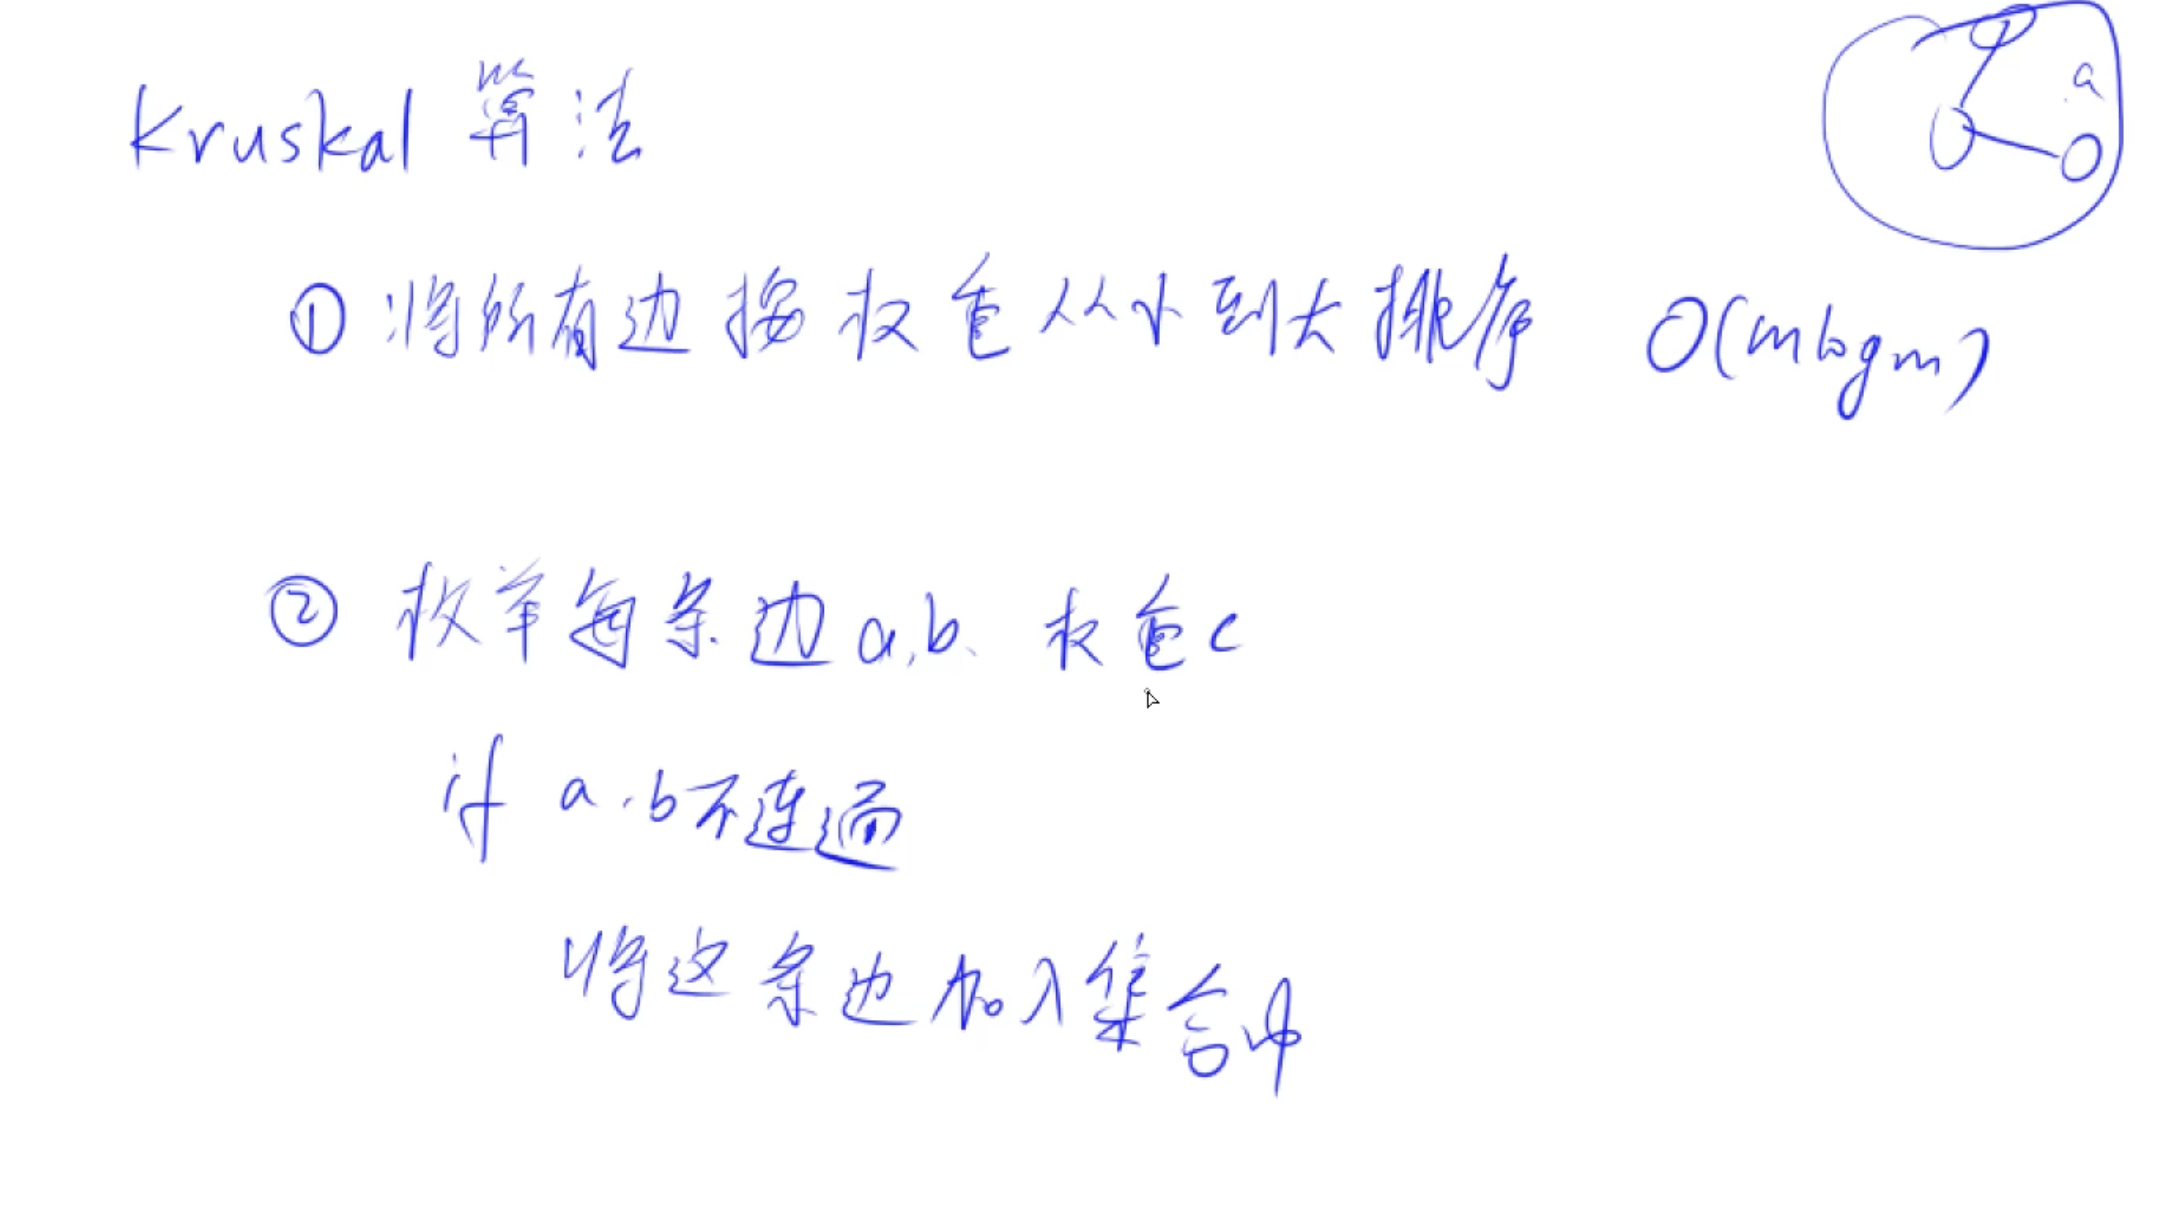 Kruskal 算法
a
① 将所有边按权重从小到大排序 O(mlogm)
② 枚举每条边a,b、权重c
if a,b不连通
将这条边加入集合中